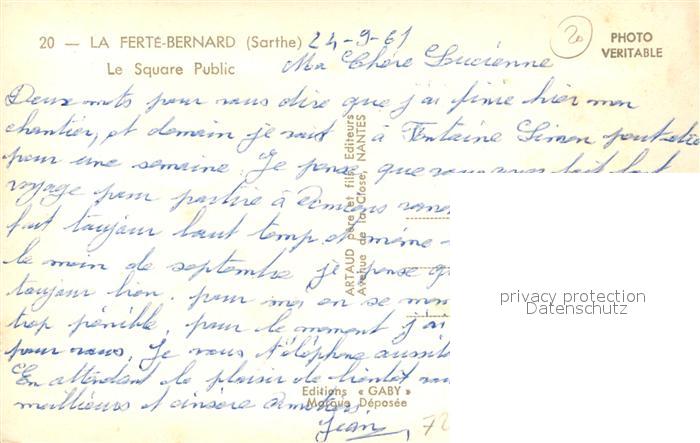 20 — LA FERTÉ-BERNARD (Sarthe)
Le Square Public
24-9-61
20
PHOTO
VERITABLE
Ma Chère Lucienne
Deux mots pour vous dire que j'ai finie hier mon
chantier, et demain je sait à Fontaine Simon peut-être
pour une semaine. Je pense que vous vous fait tout
voyage pour partire à
fait toujour beau temp et même
le main de septembre je pense
toujour bien. pour moi on se
trop pénible, pour le moment j'ai
pour vous, Je vous téléphone aussitô
En attendant le plaisir de bientôt
meilleures et sincère Amitiers
Jean
ARTAUD père et fils, Editeurs
Avenue de la Close, NANTES
Editions « GABY »
Marque Déposée
72
privacy protection
Datenschutz